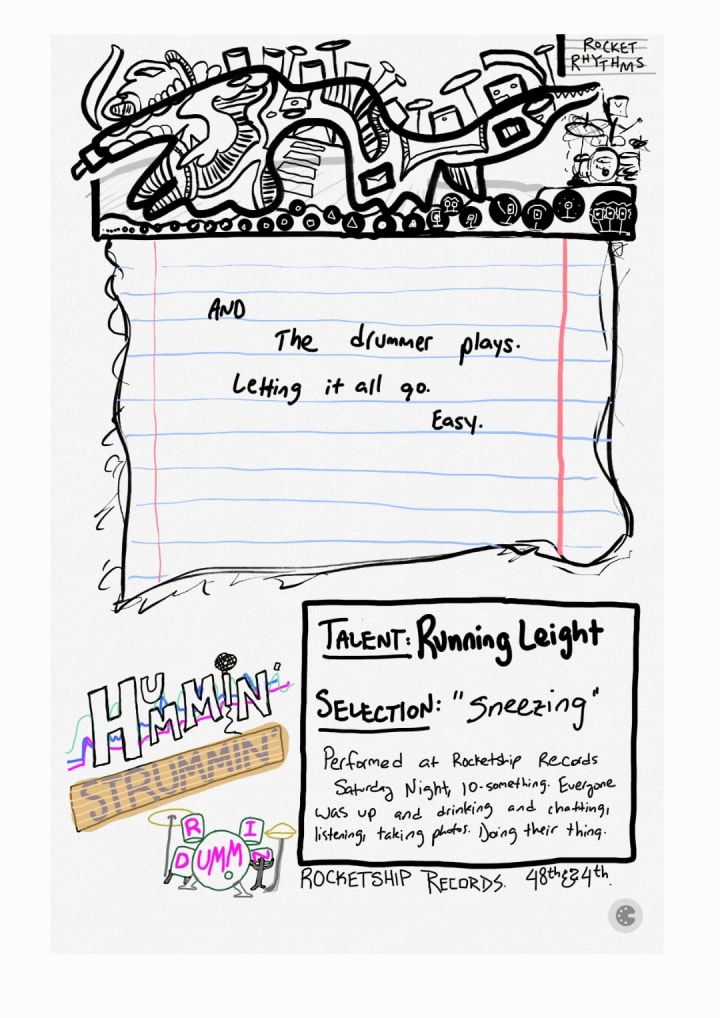 ROCKET
RHYTHMS
AND
The drummer plays.
Letting it all go.
Easy.
TALENT: Running Leight
SELECTION: "Sneezing"
Performed at Rocketship Records
Saturday Night, 10-something. Everyone
was up and drinking and chatting,
listening, taking photos. Doing their thing.
HUMMIN'
STRUMMIN'
DRUMMIN
ROCKETSHIP RECORDS. 48th & 4th.